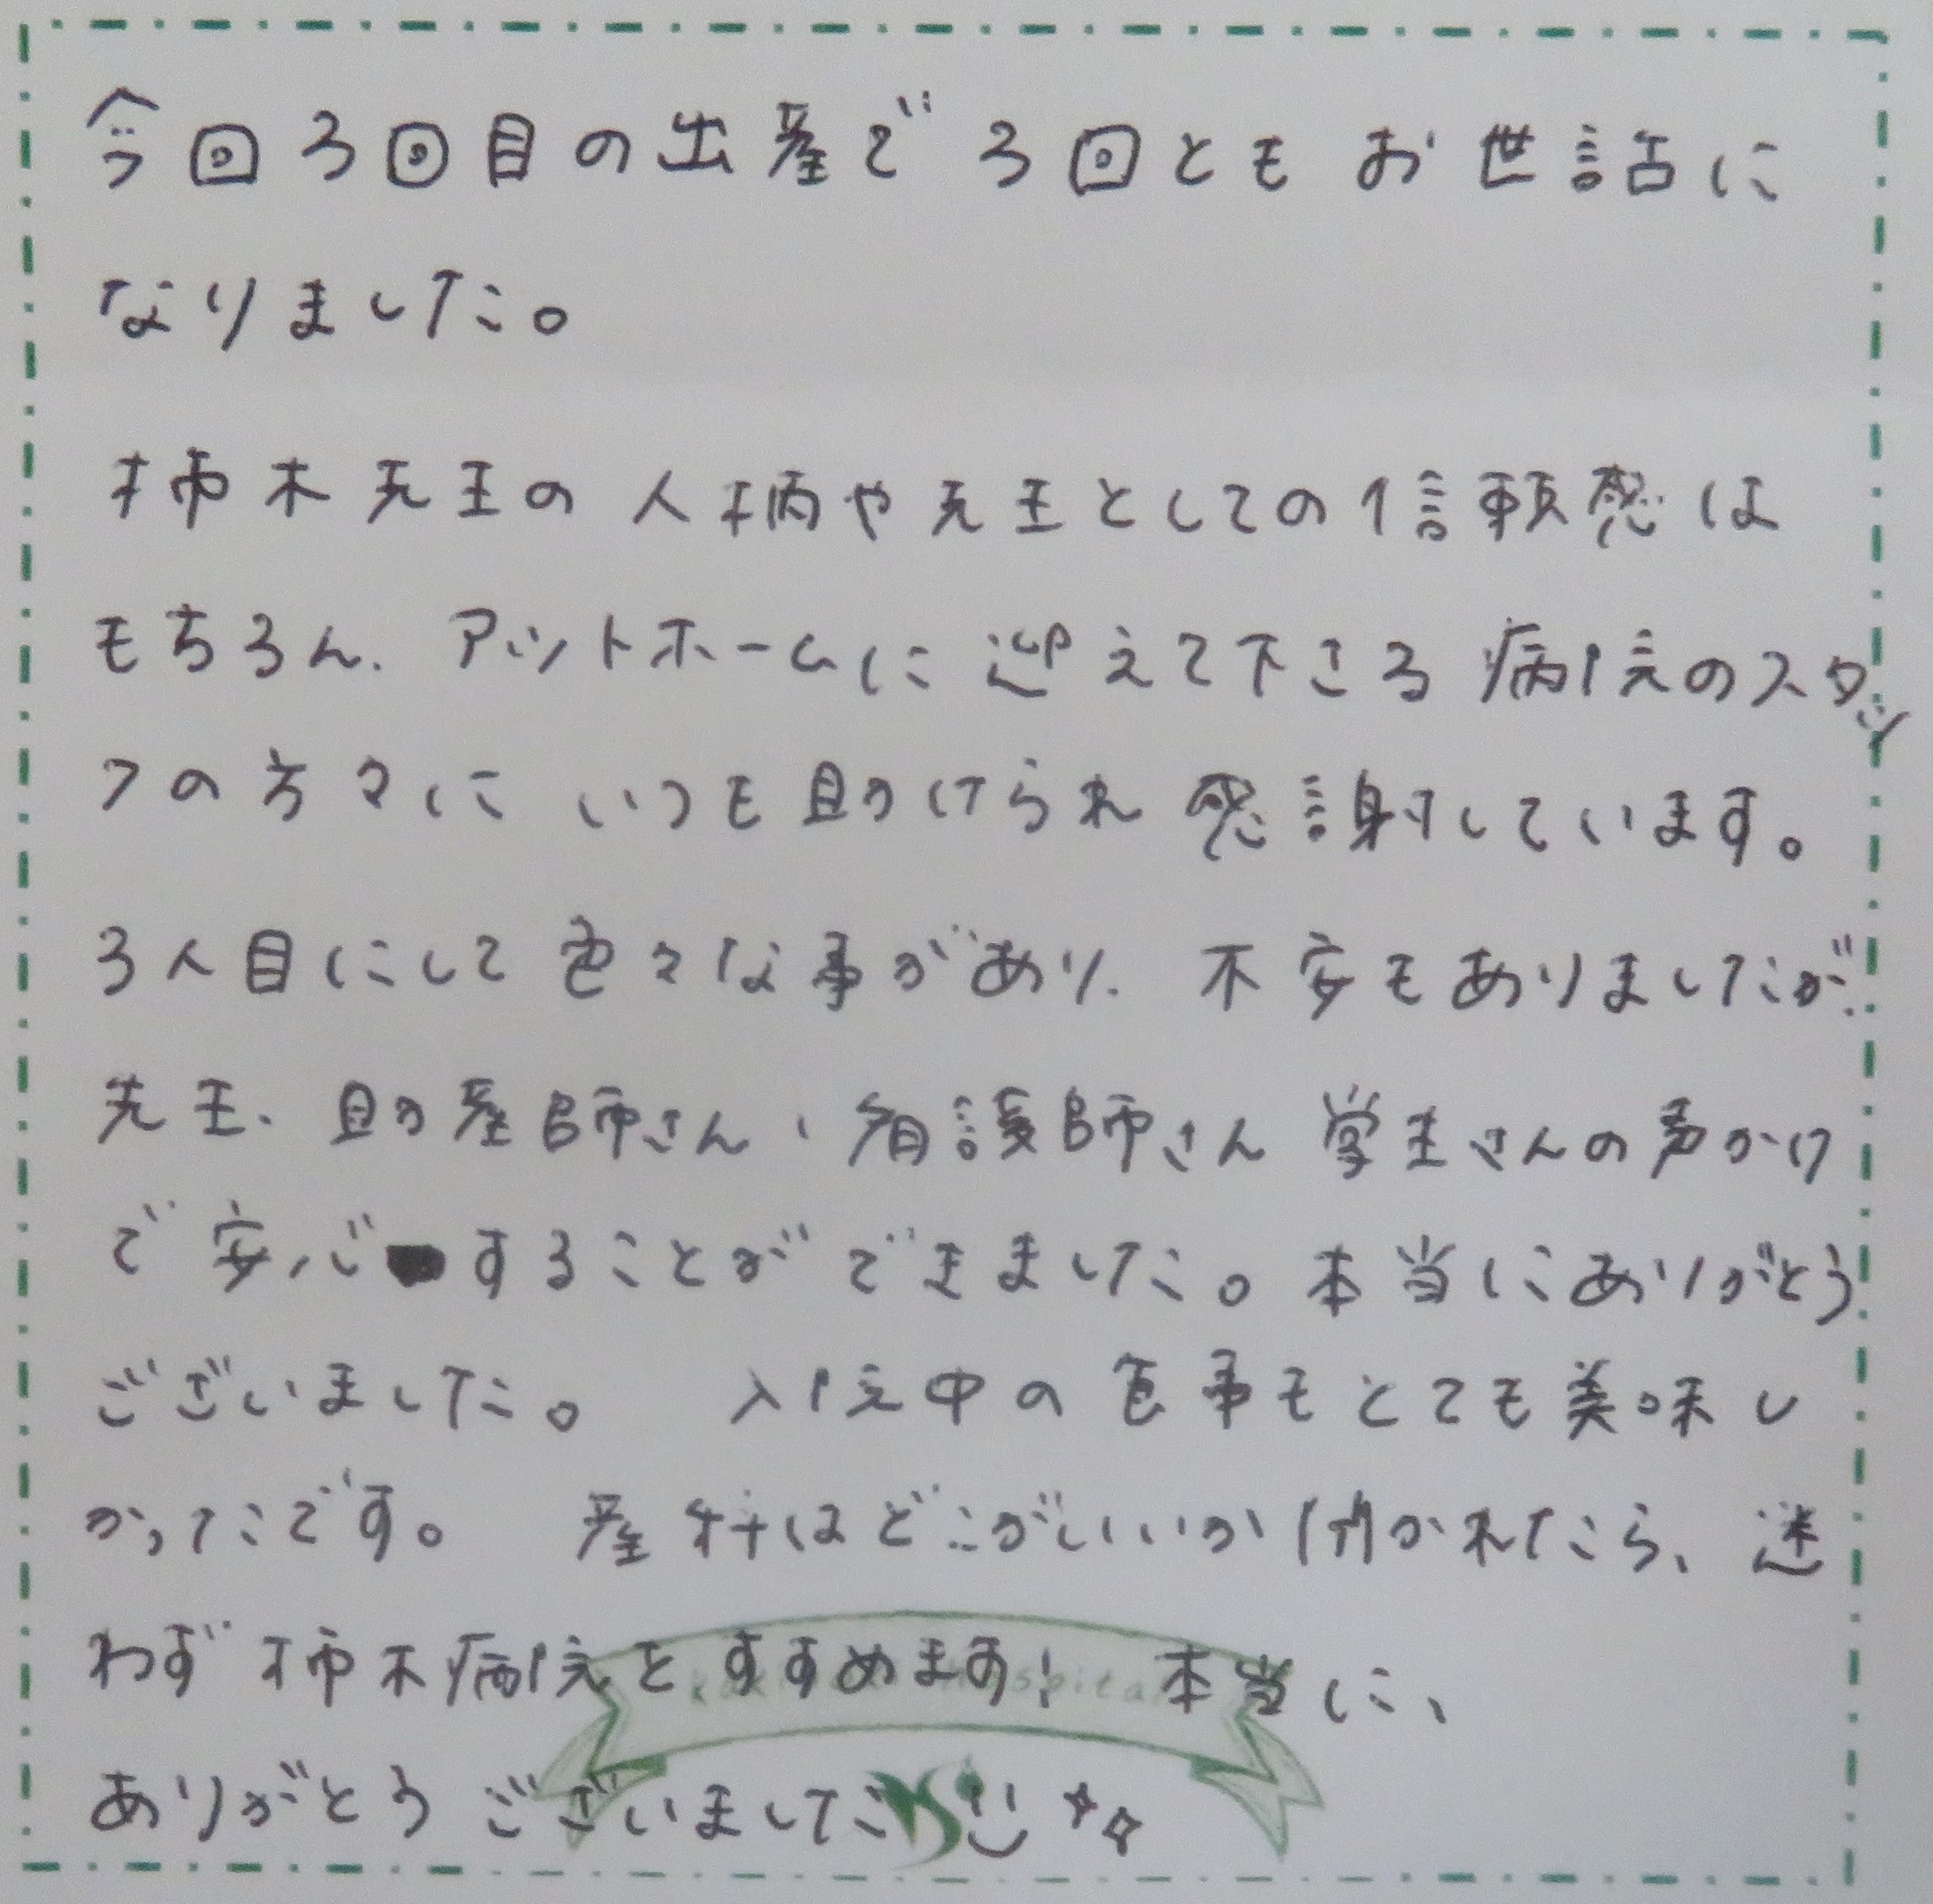 今回3回目の出産で3回ともお世話に
なりました。
柿木先生の人柄や先生としての信頼感は
もちろん、アットホームに迎えて下さる病院のスタッ
フの方々にいつも助けられ感謝しています。
3人目にして色々な事があり、不安もありましたが
先生、助産師さん、看護師さん学生さんの声かけ
で安心することができました。本当にありがとう
ございました。 入院中の食事もとても美味し
かったです。 産科はどこがいいか聞かれたら、迷
わず柿木病院をすすめます! 本当に、
ありがとうございました
kakinoki Hospital